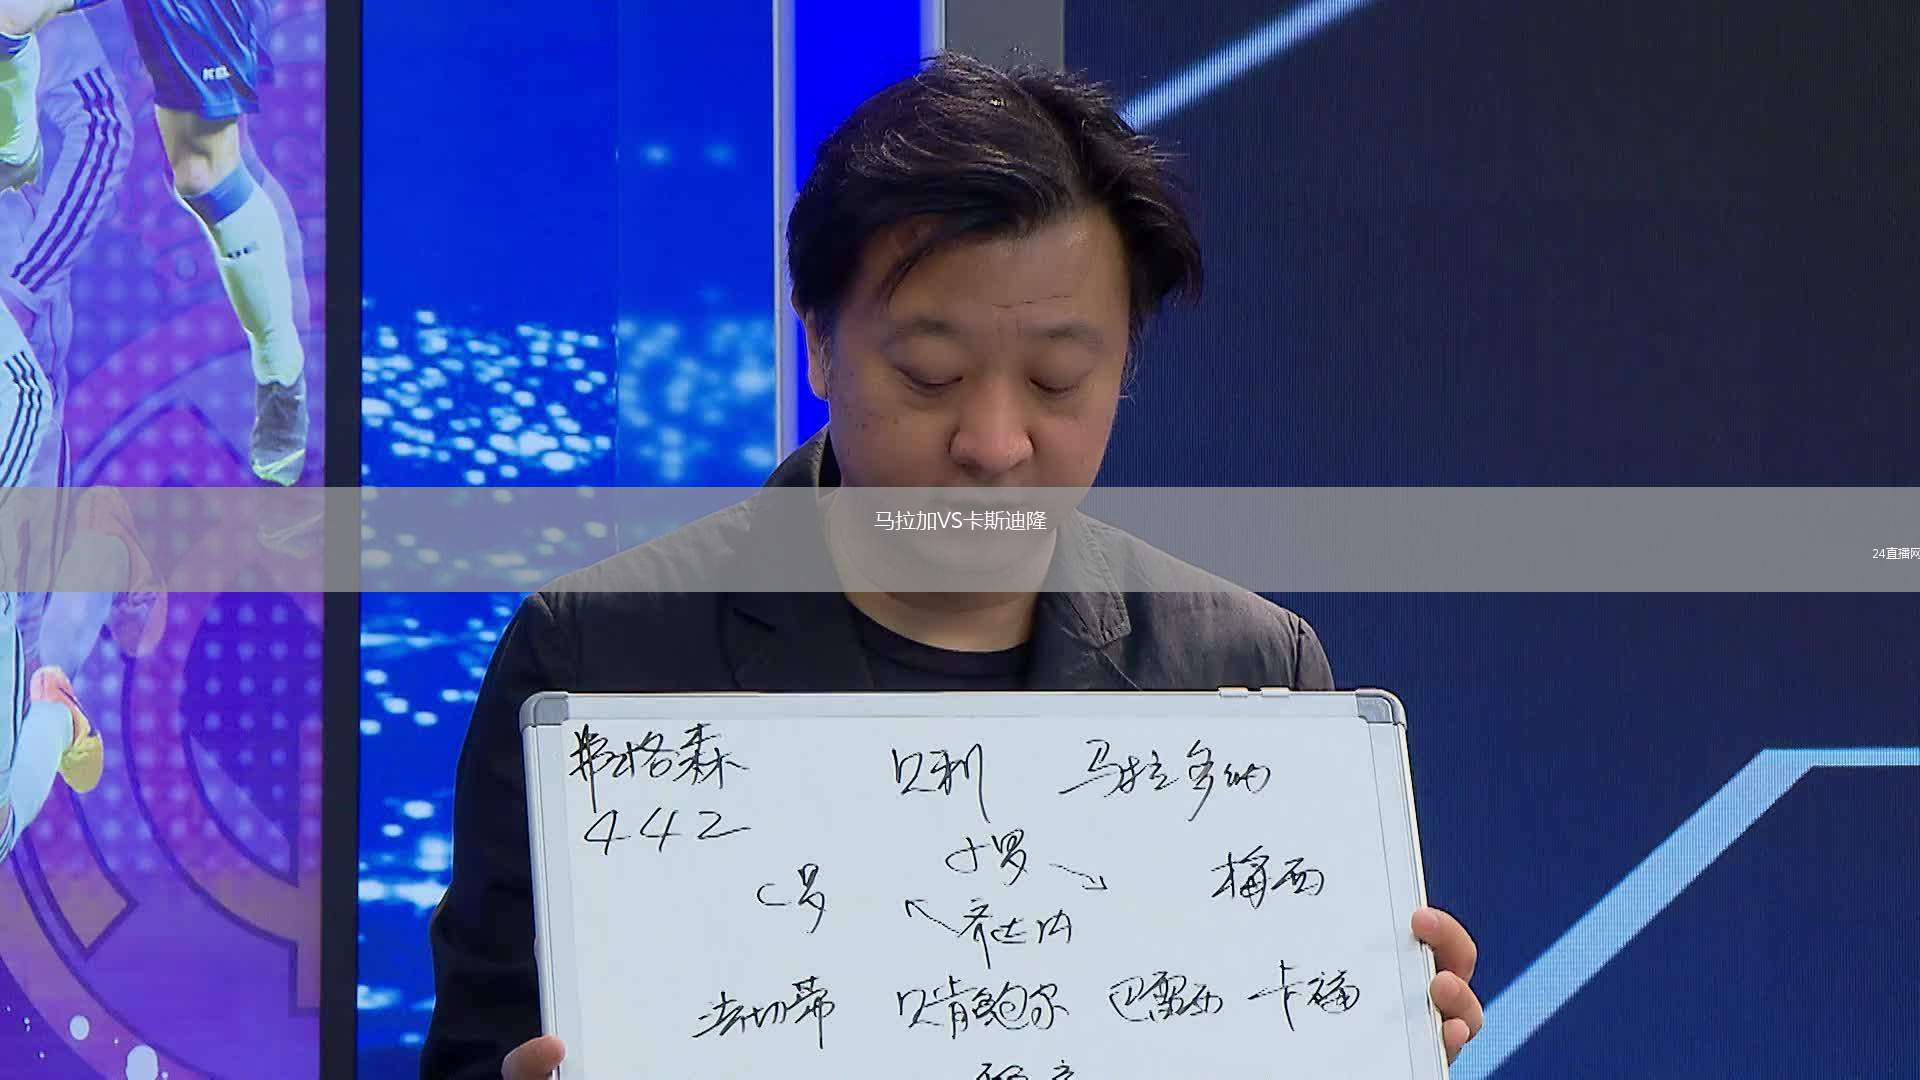 马拉加VS卡斯迪隆
24直播网
弗格森 贝利 马拉多纳
442
小罗
C罗 梅西
齐达内
法切蒂 贝肯鲍尔 巴雷西 卡福